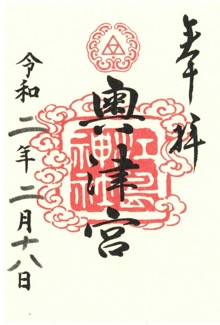 奉拝
奥津宮
江島神社
令和二年二月十八日